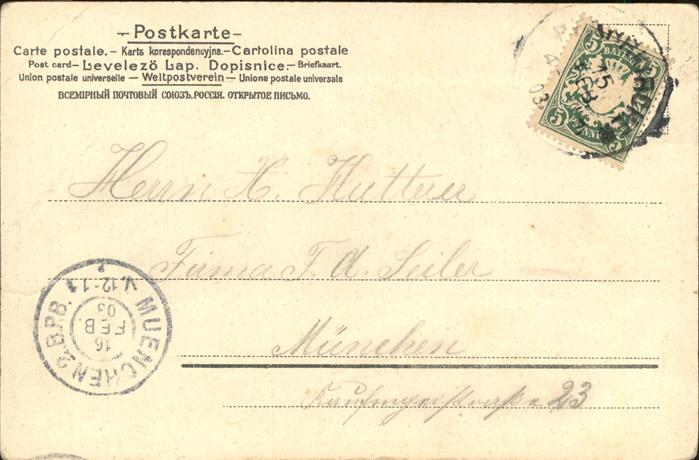 Postkarte
Carte postale. – Karta korespondencyjna. – Cartolina postale
Post card – Levelező Lap. Dopisnice. – Briefkaart.
Union postale universelle – Weltpostverein – Unione postale universale
ВСЕМІРНЫЙ ПОЧТОВЫЙ СОЮЗЪ. РОССІЯ. ОТКРЫТОЕ ПИСЬМО.
5 BAYERN 5
5 PFENNIG 5
15 FEB
03
Herrn H. Hutterer
Firma F. A. Seiler
München
23
MUENCHEN 2 B.P.B.
16
FEB.
03
V. 12-1